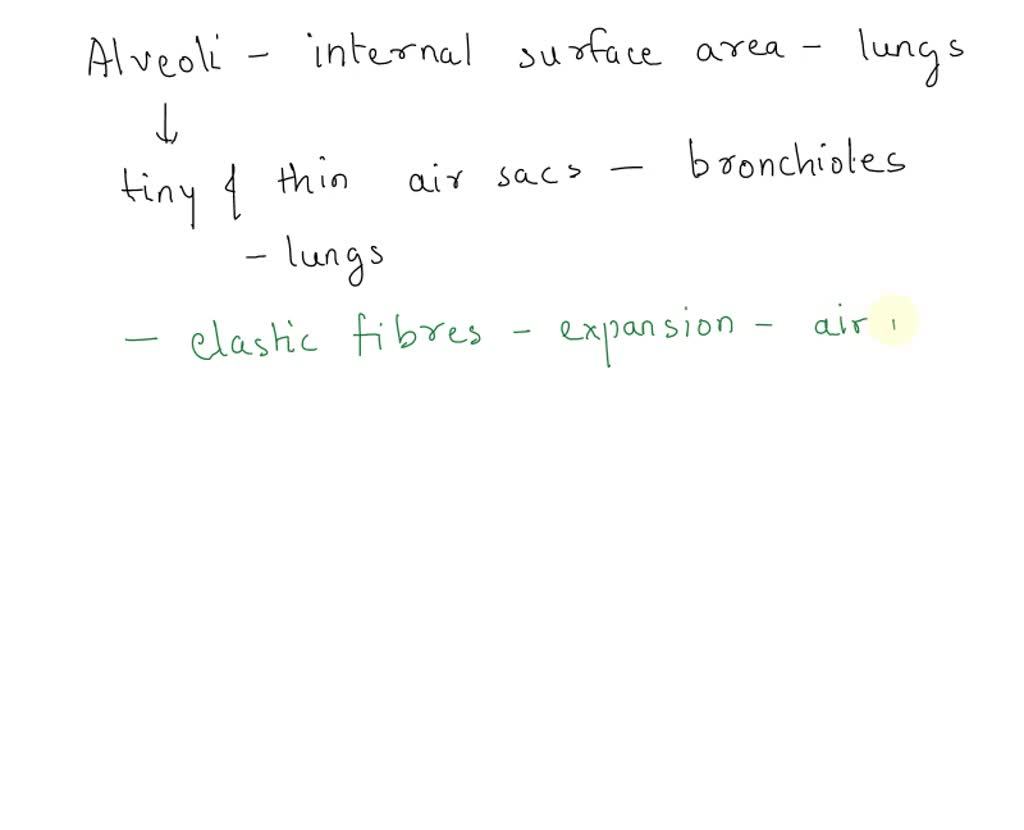 Alveoli - internal surface area - lungs
↓
tiny & thin air sacs - bronchioles
- lungs
- elastic fibres - expansion - air